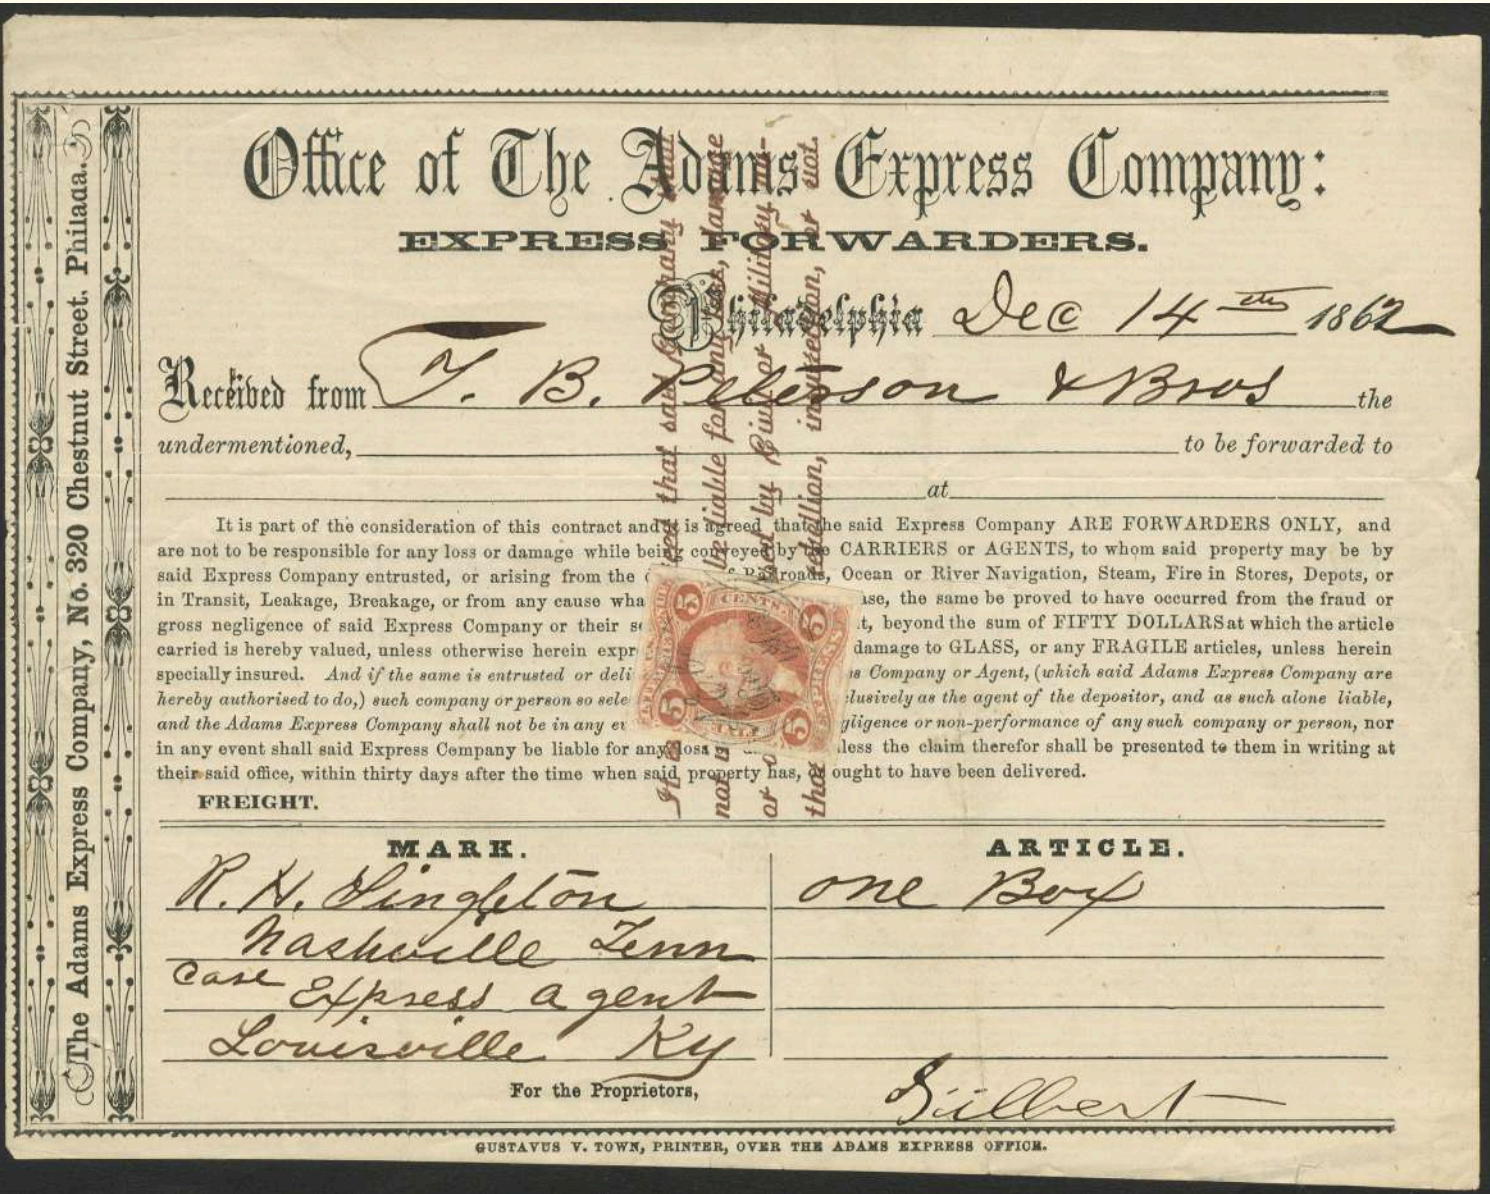 Office of The Adams Express Company:
EXPRESS FORWARDERS.
Philadelphia Dec 14th 1862
Received from T. B. Peterson & Bros the
undermentioned, to be forwarded to
at
It is part of the consideration of this contract and it is agreed that the said Express Company ARE FORWARDERS ONLY, and
are not to be responsible for any loss or damage while being conveyed by the CARRIERS or AGENTS, to whom said property may be by
said Express Company entrusted, or arising from the of Railroads, Ocean or River Navigation, Steam, Fire in Stores, Depots, or
in Transit, Leakage, Breakage, or from any cause wha ase, the same be proved to have occurred from the fraud or
gross negligence of said Express Company or their se t, beyond the sum of FIFTY DOLLARS at which the article
carried is hereby valued, unless otherwise herein expr damage to GLASS, or any FRAGILE articles, unless herein
specially insured. And if the same is entrusted or deli s Company or Agent, (which said Adams Express Company are
hereby authorised to do,) such company or person so sele clusively as the agent of the depositor, and as such alone liable,
and the Adams Express Company shall not be in any ev gligence or non-performance of any such company or person, nor
in any event shall said Express Company be liable for any loss less the claim therefor shall be presented to them in writing at
their said office, within thirty days after the time when said property has, or ought to have been delivered.
FREIGHT.
MARK. ARTICLE.
R. H. Singleton one Box
Nashville Tenn
Case Express agent
Louisville Ky
For the Proprietors, Gilbert
GUSTAVUS V. TOWN, PRINTER, OVER THE ADAMS EXPRESS OFFICE.
The Adams Express Company, No. 320 Chestnut Street, Philada.
It is that said Company shall
not be liable for any loss, damage
or by Civil or Military au-
rebellion, insurrection, or riot.
5 CENTS. 5
EXPRESS
5 5